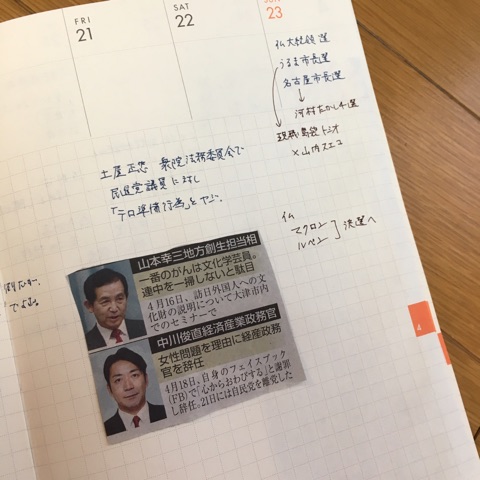 FRI
21
SAT
22
SUN
23
仏大統領選
うるま市長選
名古屋市長選
河村たかし4選
現職 島袋トシオ
×山内スエコ
土屋正忠 衆院法務委員会で
民進党議員に対し
「テロ準備行為」とヤジ.
仏
マクロン
ルペン
決選へ
山本幸三地方創生担当相
一番のがんは文化学芸員。
連中を一掃しないと駄目
4月16日、訪日外国人への文
化財の説明について大津市内
でのセミナーで
中川俊直経済産業政務官
女性問題を理由に経産政務
官を辞任
4月18日、自身のフェイスブック
(FB)で「心からおわびする」と謝罪
し辞任。21日には自民党を離党した
4